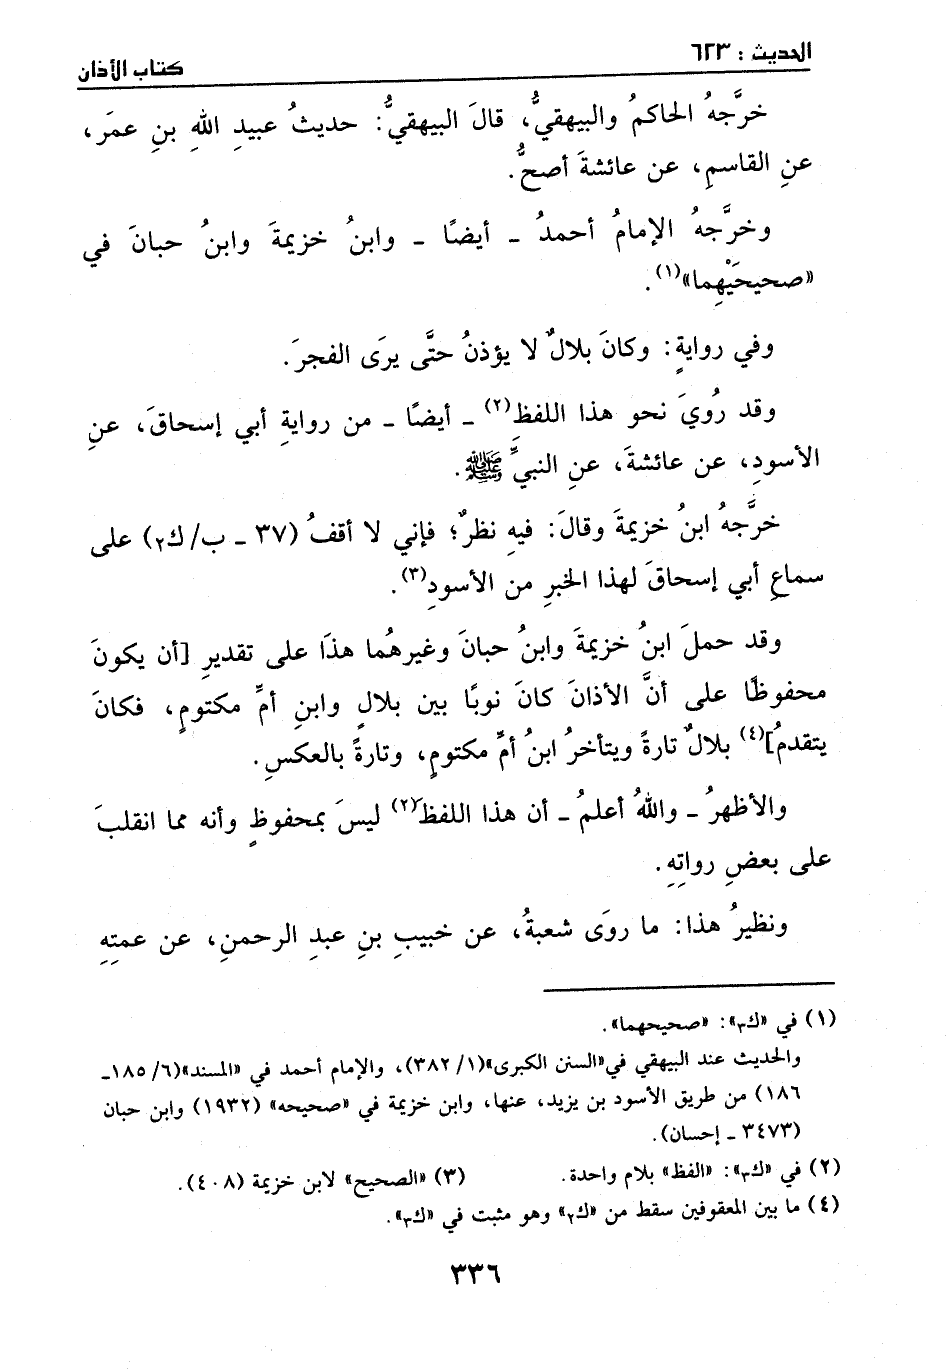 الحديث : ٦٢٣ كتاب الأذان
خرَّجهُ الحاكمُ والبيهقيُّ، قالَ البيهقيُّ: حديثُ عبيدِ اللهِ بنِ عمرَ،
عنِ القاسمِ، عن عائشةَ أصحُّ.
وخرَّجهُ الإمامُ أحمدُ ـ أيضًا ـ وابنُ خزيمةَ وابنُ حبانَ في
«صحيحَيْهِما»(١).
وفي روايةٍ: وكانَ بلالٌ لا يؤذنُ حتَّى يرَى الفجرَ.
وقد رُويَ نحو هذا اللفظِ(٢) ـ أيضًا ـ من روايةِ أبي إسحاقَ، عنِ
الأسودِ، عن عائشةَ، عنِ النبيِّ ﷺ.
خرَّجهُ ابنُ خزيمةَ وقالَ: فيهِ نظرٌ؛ فإني لا أقفُ (٣٧ ـ ب/ ك٢) على
سماعِ أبي إسحاقَ لهذا الخبرِ من الأسودِ(٣).
وقد حملَ ابنُ خزيمةَ وابنُ حبانَ وغيرهُما هذَا على تقديرِ [أن يكونَ
محفوظًا على أنَّ الأذانَ كانَ نوبًا بين بلالٍ وابنِ أمِّ مكتومٍ، فكانَ
يتقدمُ](٤) بلالٌ تارةً ويتأخرُ ابنُ أمِّ مكتومٍ، وتارةً بالعكسِ.
والأظهرُ ـ واللهُ أعلمُ ـ أن هذا اللفظَ(٢) ليسَ بمحفوظٍ وأنه مما انقلبَ
على بعضِ رواتِهِ.
ونظيرُ هذا: ما روَى شعبةُ، عن خبيبِ بنِ عبدِ الرحمنِ، عن عمتِهِ
(١) في «ك٣»: «صحيحهما».
والحديث عند البيهقي في«السنن الكبرى»(١/ ٣٨٢)، والإمام أحمد في «المسند»(٦/ ١٨٥ـ
١٨٦) من طريق الأسود بن يزيد، عنها، وابن خزيمة في «صحيحه» (١٩٣٢) وابن حبان
(٣٤٧٣ ـ إحسان).
(٢) في «ك٣»: «الفظ» بلام واحدة. (٣) «الصحيح» لابن خزيمة (٤٠٨).
(٤) ما بين المعقوفين سقط من «ك٢» وهو مثبت في «ك٣».
٣٣٦